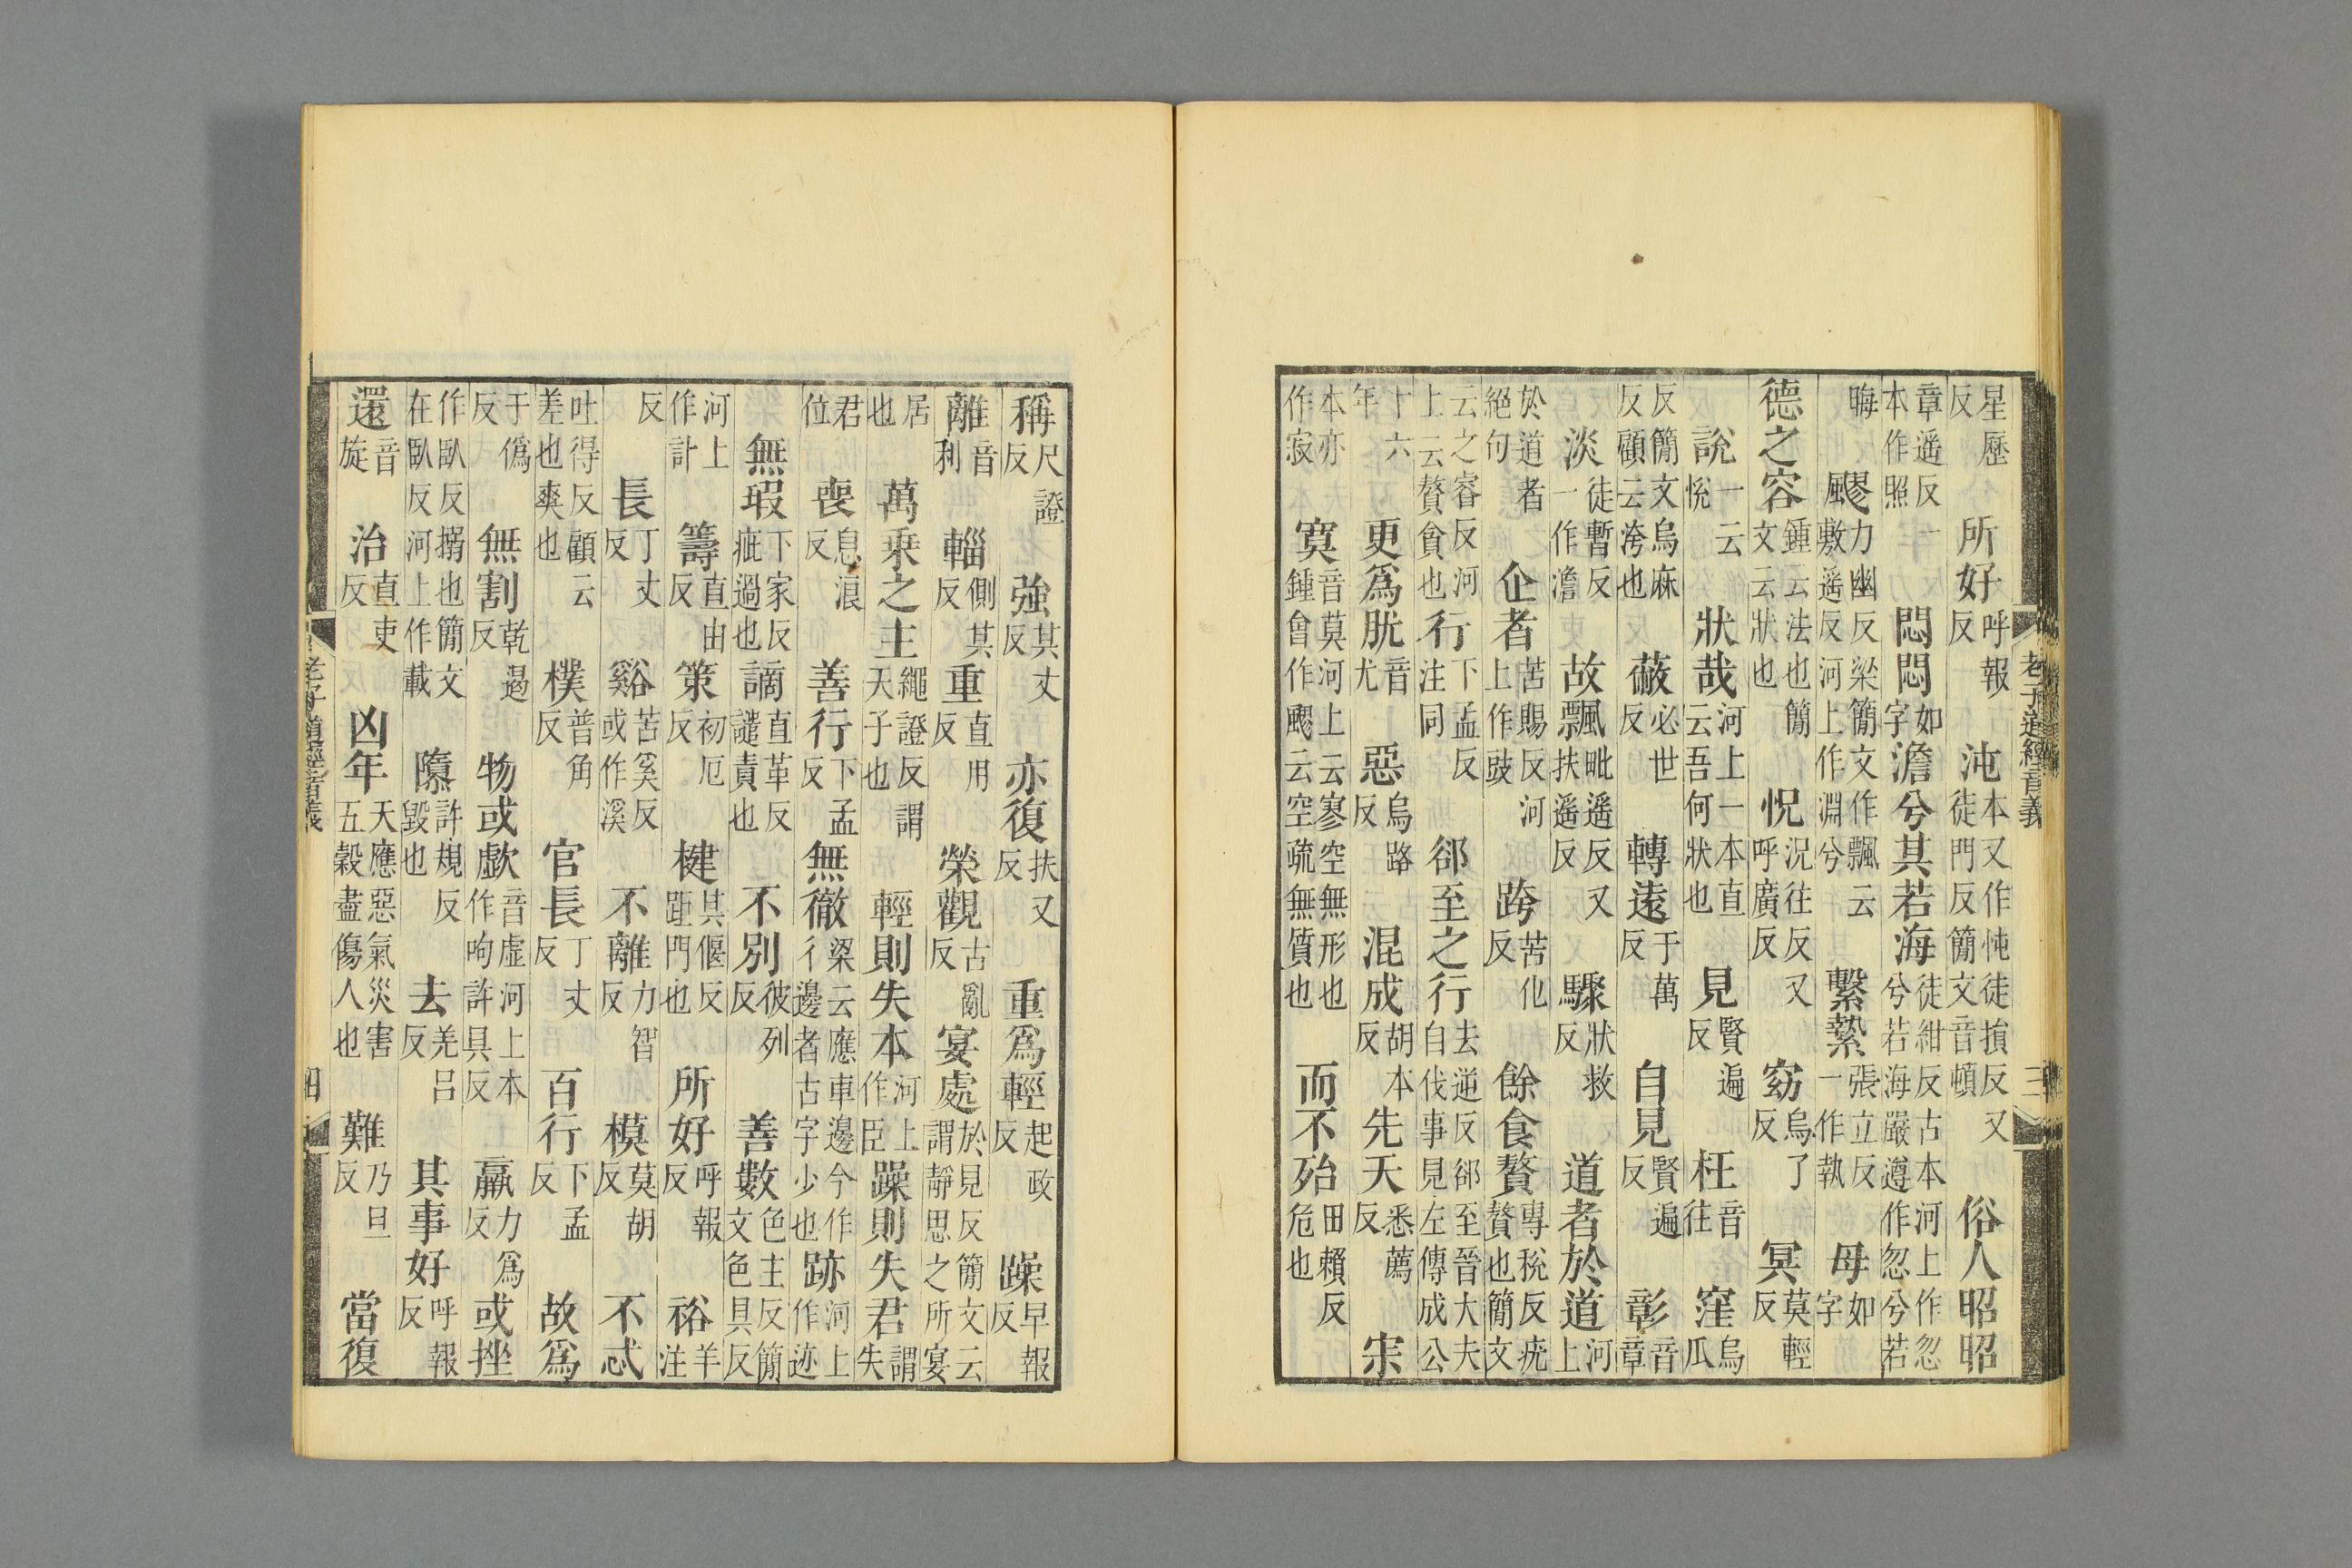 老子道經音義 三
星歷反 所好呼報反 沌本又作忳徒損反又徒門反簡文音頓 俗人昭昭
章遥反一本作照 悶悶如字 澹兮其若海徒紺反古本河上作忽兮若海嚴遵作忽兮若
晦 飂力幽反梁簡文作飄云敷遥反河上作淵兮 繫縶張立反一作執 母如字
德之容鍾云法也簡文云狀也 怳況往反又呼廣反 窈烏了反 冥莫輕反
說一云悅 狀哉河上一本直云吾何狀也 見賢遍反 枉音往 窪烏瓜
反簡文烏麻反顧云洿也 蔽必世反 轉遠于萬反 自見賢遍反 彰音章
淡徒暫反一作澹 故飄毗遥反又扶遥反 驟狀救反 道者於道河上
於道者絕句 企者苦賜反河上作跂 跨苦化反 餘食贅專稅反疣贅也簡文
云之睿反河上云贅貪也 行下孟反注同 郤至之行去逆反郤至晉大夫自伐事見左傳成公
十六年 更爲肬音尤 惡烏路反 混成胡本反 先天悉薦反 宗
本亦作寂 寞音莫河上云寥空無形也鍾會作飂云空疏無質也 而不殆田賴反危也
稱尺證反 強其丈反 亦復扶又反 重爲輕起政反 躁早報反
離音利 輜側其反 重直用反 榮觀古亂反 宴處於見反簡文云謂靜思之所宴
居也 萬乗之主繩證反謂天子也 輕則失本河上作臣 躁則失君謂失
君位 喪息浪反 善行下孟反 無徹梁云應車邊今作彳邊者古字少也 跡河上作迹
無瑕下家反疵過也 謫直革反譴責也 不別彼列反 善數色主反簡文色具反
河上作計 籌直由反 策初厄反 楗其偃反距門也 所好呼報反 裕羊注
反 長丁丈反 谿苦奚反或作溪 不離力智反 模莫胡反 不忒
吐得反顧云差也爽也 樸普角反 官長丁丈反 百行下孟反 故爲
于僞反 無割乾遏反 物或歔音虛河上本作呴許具反 羸力爲反 或挫
作臥反搦也簡文在臥反河上作載 隳許規反毀也 去羌呂反 其事好呼報反
還音旋 治直吏反 凶年天應惡氣災害五穀盡傷人也 難乃旦反 當復
老子道經音義 四